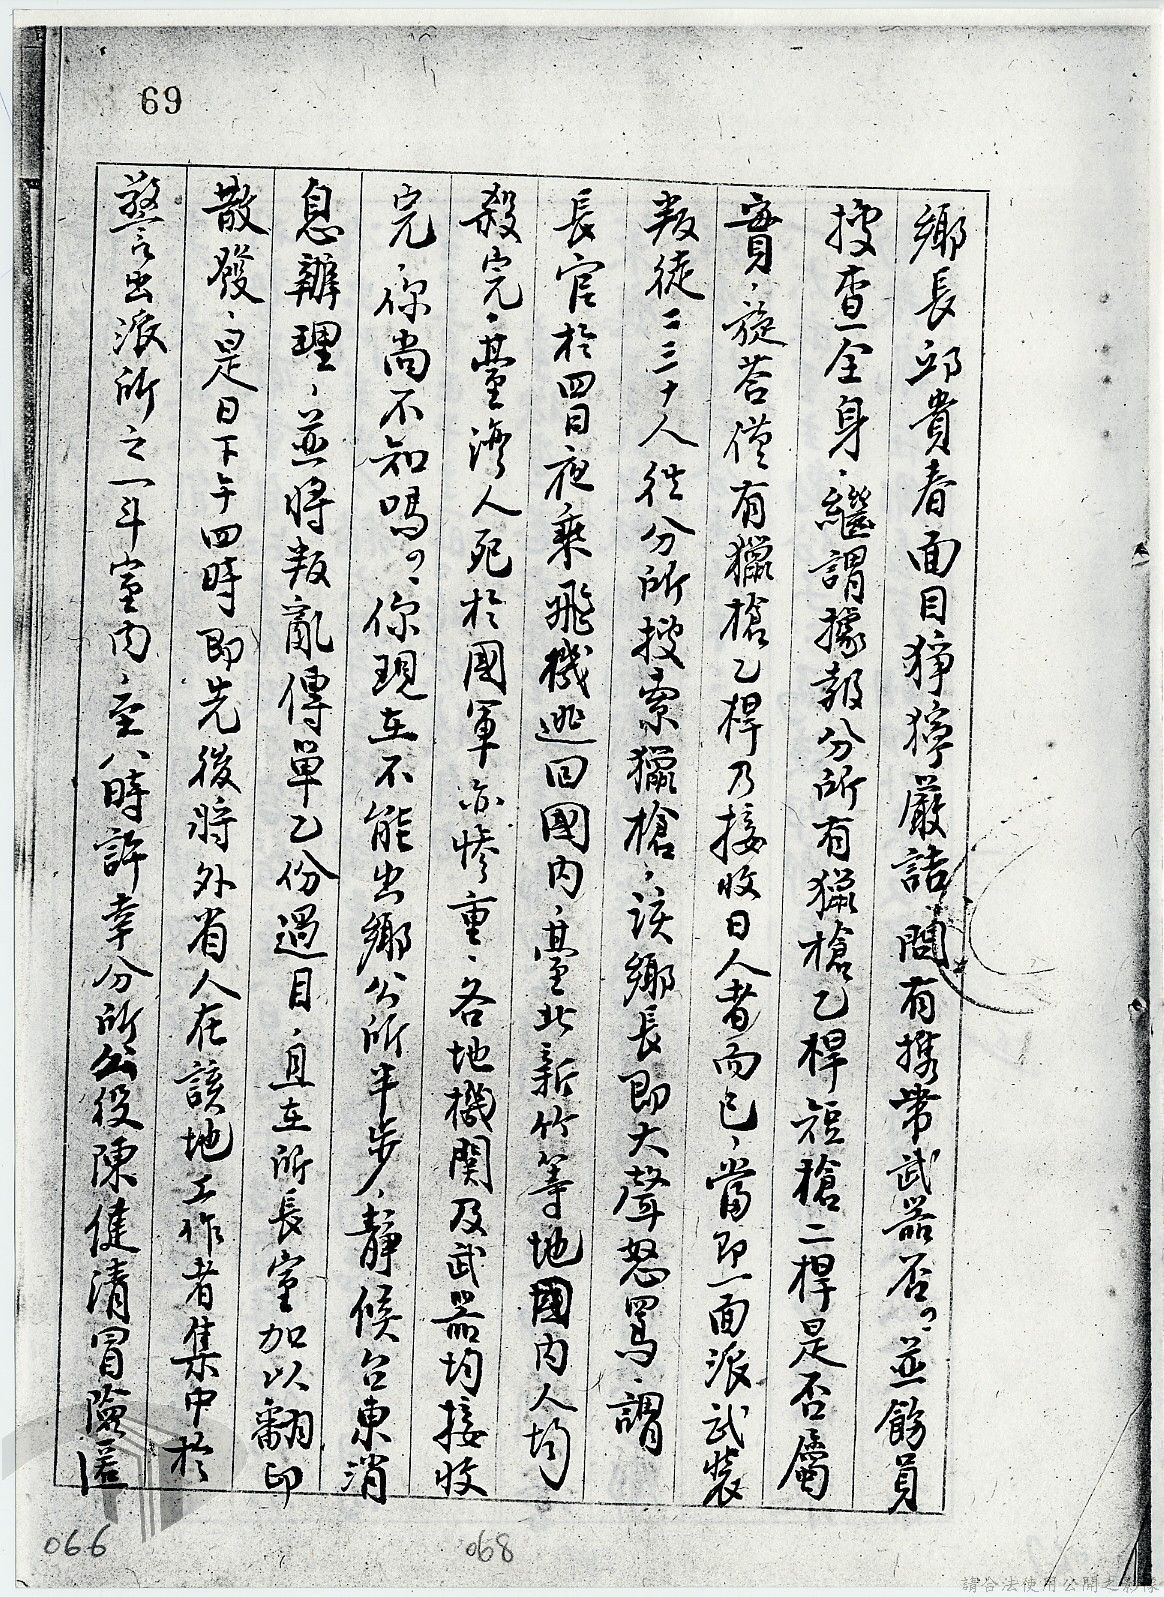 69
鄉長邱貴春面目猙獰嚴詰問有携帶武器否？並飭員
搜查全身、繼謂據報分所有獵槍乙桿短槍二桿是否屬
實、旋答僅有獵槍乙桿乃接收日人者而已、當即一面派武裝
叛徒二三十人往分所搜索獵槍、該鄉長即大聲怒罵、謂
長官於四日夜乘飛機逃回國內、臺北新竹等地國內人均
殺完、臺灣人死於國軍亦慘重、各地機関及武器均接收
完、你尚不知嗎？、你現在不能出鄉公所半步、靜候台東消
息辦理、並將叛亂傳單乙份過目、且在所長室加以翻印
散發、是日下午四時即先後將外省人在該地工作者集中於
警察派出所之一斗室內、至八時許幸分所公役陳健清冒險匿
066
068
請合法使用公開之影像